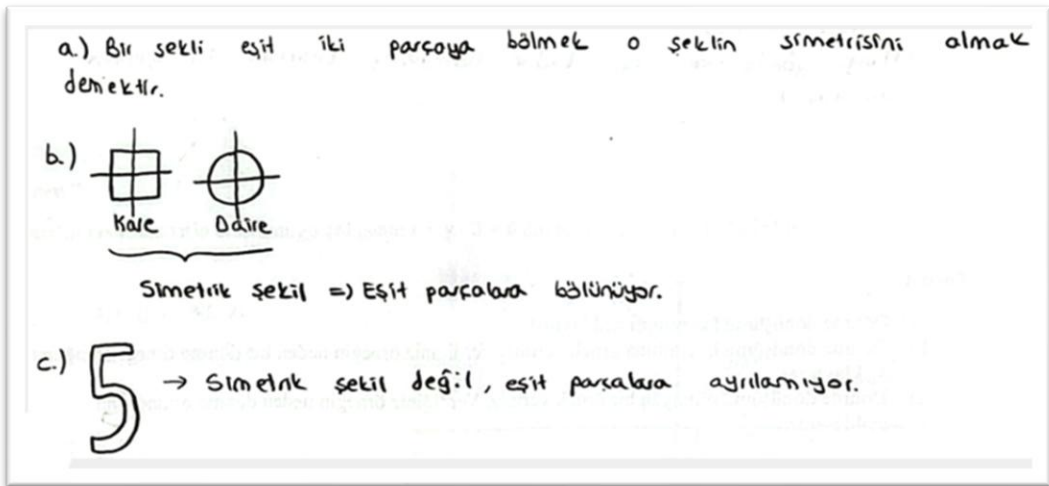 a.) Bir şekli eşit iki parçaya bölmek o şeklin simetrisini almak
demektir.
b.)
Kare Daire
Simetrik şekil => Eşit parçalara bölünüyor.
c.) 5 → Simetrik şekil değil, eşit parçalara ayrılamıyor.